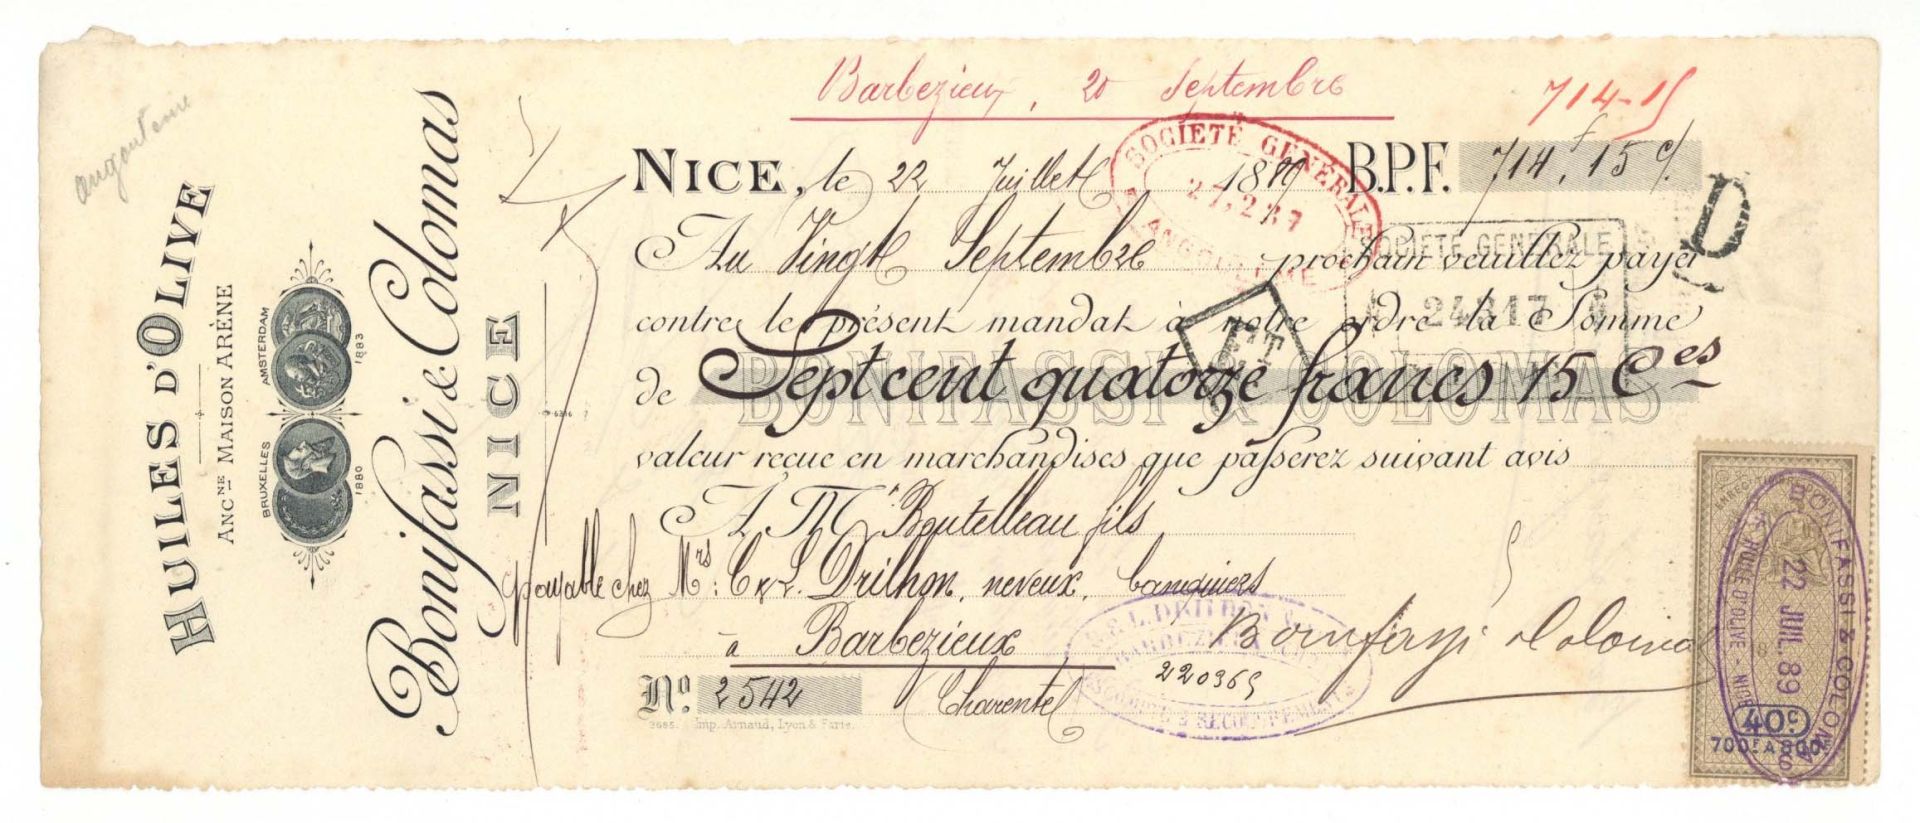 angouleme
HUILES D'OLIVE
ANC.NE MAISON ARÈNE
AMSTERDAM
1883
BRUXELLES
1880
Bonifassi & Colomas
NICE
Barbezieux, 20 Septembre
714-15
NICE, le 22 Juillet 1889 B.P.F. 714f, 15 c/.
Au Vingt Septembre prochain veuillez payer
contre le présent mandat à notre ordre la Somme
de Sept cent quatorze francs 15 Ces
BONIFASSI & COLOMAS
valeur reçue en marchandises que passerez suivant avis
A M.r Boutelleau fils
payable chez Mrs: C & L. Drilhon, neveux, banquiers
à Barbezieux
Charente
No. 2542
Imp. Arnaud, Lyon & Paris.
Bonifassi & Colomas
220365
SOCIÉTÉ GÉNÉRALE
ANGOULÊME
SOCIÉTÉ GÉNÉRALE
24817
D
& L. DRILHON
ESCOMPTE & RECOUVREMENTS
BONIFASSI & COLOMAS
22 JUIL. 89
HUILE D'OLIVE - NICE
40c
700F A 800F